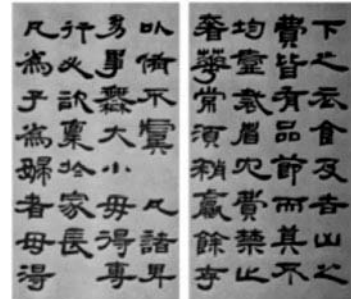 下之衣食及吉凶之
費皆有品節而莫不
均壹裁省冗費禁止
奢華常須稍贏餘存
以備不虞 凡諸卑
幼事無大小毋得專
行必稟於家長
凡為子為婦者毋得